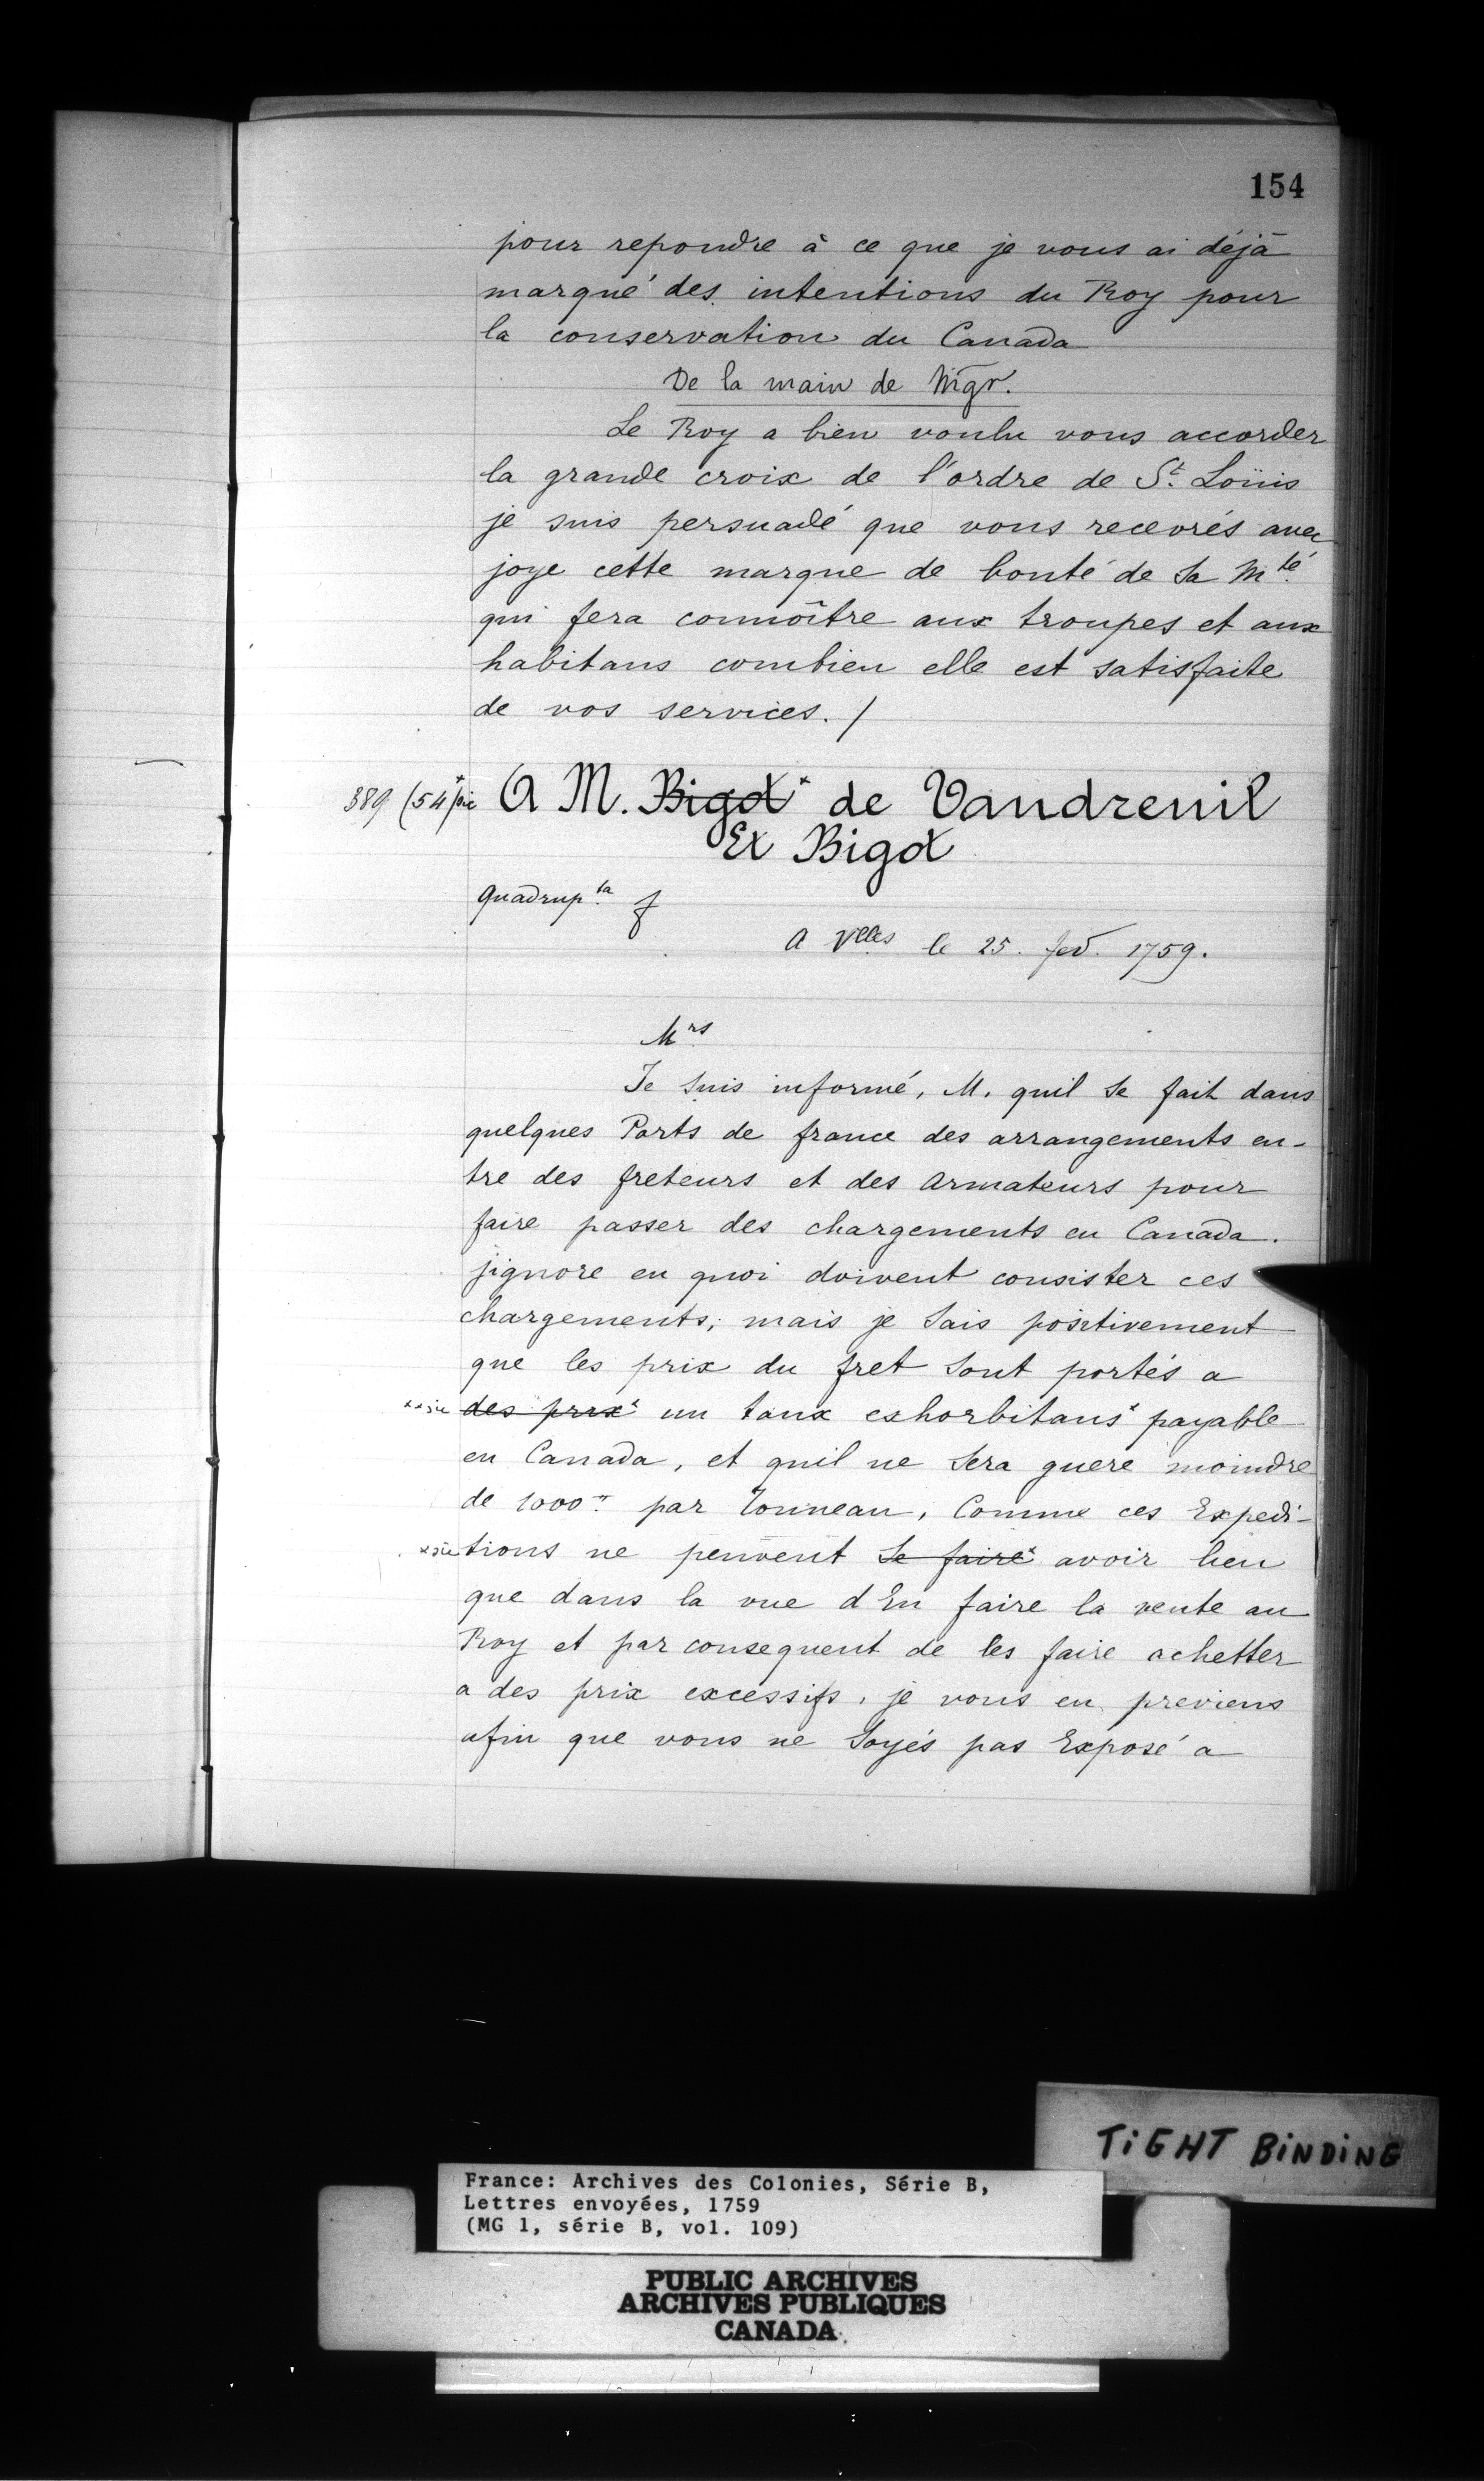 154
pour repondre à ce que je vous ai déjà
marqué des intentions du Roy pour
la conservation du Canada
De la main de Mgr.
Le Roy a bien voulu vous accorder
la grande croix de l'ordre de St. Loüis
je suis persuadé que vous recevrés avec
joye cette marque de bonté de Sa Mté
qui fera connoître aux troupes et aux
habitans combien elle est satisfaite
de vos services. /
389 (54) *sic A M. Bigot* de Vaudreuil
Et Bigot
quadrup.ta
A Vlles le 25. fev. 1759.
Mrs
Je Suis informé, M. quil Se fait dans
quelques Ports de france des arrangements en-
tre des freteurs et des Armateurs pour
faire passer des chargements en Canada.
jignore en quoi doivent consister ces
chargements; mais je Sais positivement
que les prix du fret Sont portés a
xx sic des prix* un taux exhorbitans* payable
en Canada, et quil ne Sera guere moindre
de 1000" par Tonneau, Comme ces Expedi-
x sic tions ne peuvent Se faire* avoir lieu
que dans la vue d'En faire la vente au
Roy et par consequent de les faire achetter
a des prix excessifs, je vous en previens
afin que vous ne Soyés pas Exposé a
TiGHT BiNDiNG
France: Archives des Colonies, Série B,
Lettres envoyées, 1759
(MG 1, série B, vol. 109)
PUBLIC ARCHIVES
ARCHIVES PUBLIQUES
CANADA